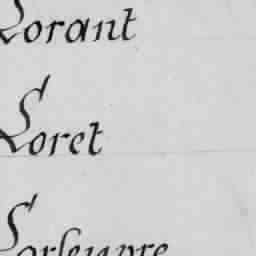 Lorant
Loret
Lorleupre